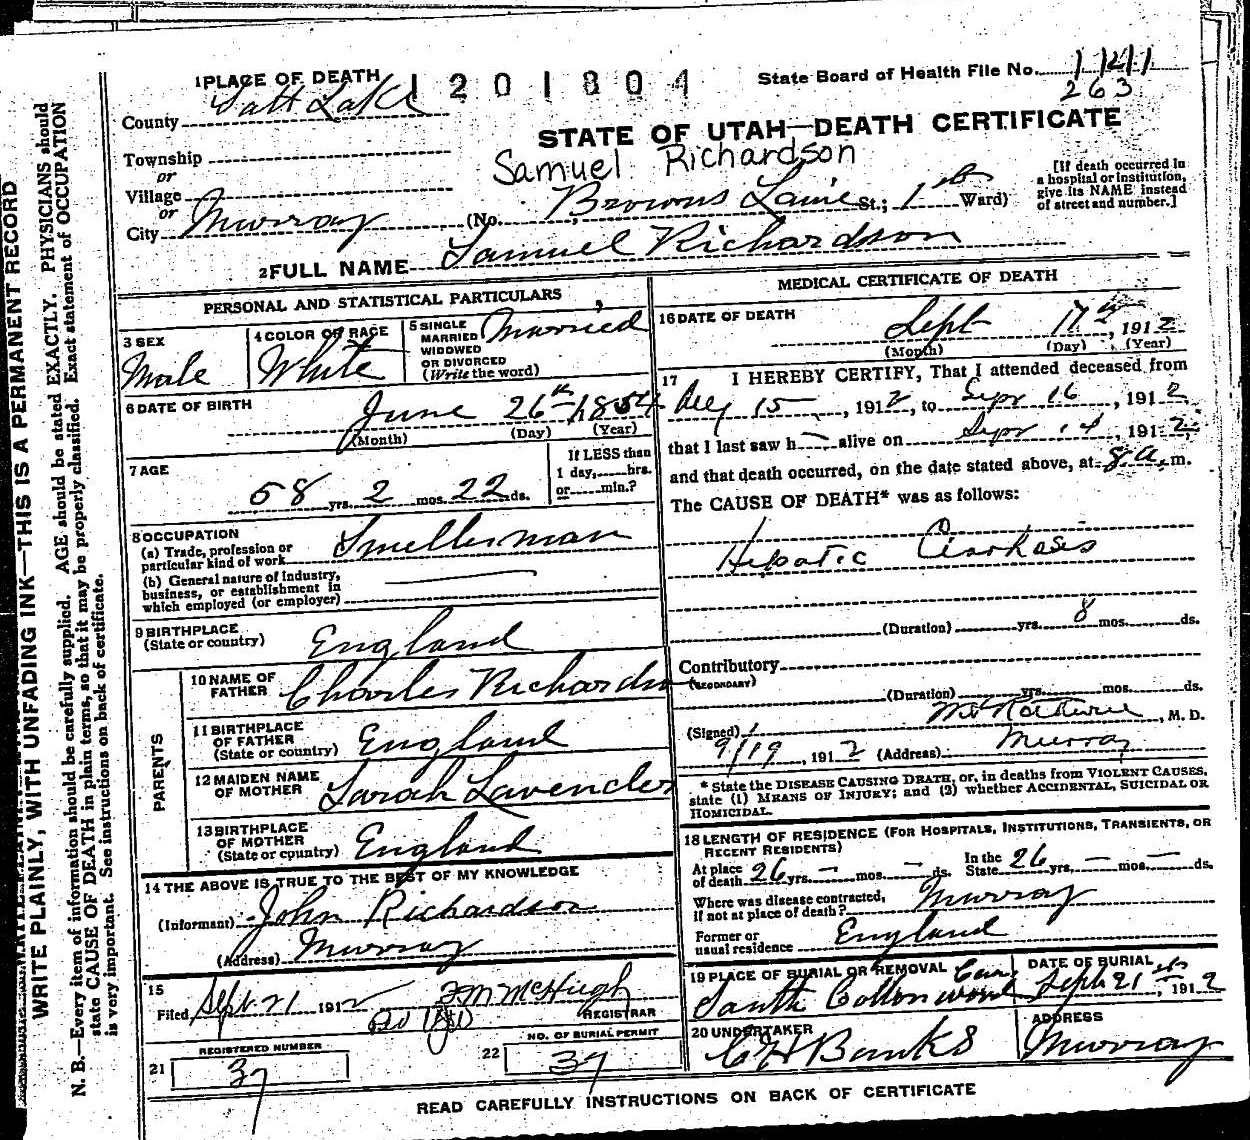 1 PLACE OF DEATH 1201804 State Board of Health File No. 1121
263
County Salt Lake
STATE OF UTAH—DEATH CERTIFICATE
Township
or
Samuel Richardson
Village
or
City Murray (No. Browns Laine St.; 1st Ward)
[If death occurred in
a hospital or institution,
give its NAME instead
of street and number.]
2 FULL NAME Samuel Richardson
PERSONAL AND STATISTICAL PARTICULARS
3 SEX
Male
4 COLOR OR RACE
White
5 SINGLE
MARRIED
WIDOWED
OR DIVORCED
(Write the word)
Married
6 DATE OF BIRTH
June 26th 1854
(Month) (Day) (Year)
7 AGE
58 yrs. 2 mos. 22 ds.
If LESS than
1 day, hrs.
or min.?
8 OCCUPATION
(a) Trade, profession or
particular kind of work Smelterman
(b) General nature of industry,
business, or establishment in
which employed (or employer)
9 BIRTHPLACE
(State or country) England
PARENTS
10 NAME OF
FATHER Charles Richardson
11 BIRTHPLACE
OF FATHER
(State or country) England
12 MAIDEN NAME
OF MOTHER Sarah Lavender
13 BIRTHPLACE
OF MOTHER
(State or country) England
14 THE ABOVE IS TRUE TO THE BEST OF MY KNOWLEDGE
(Informant) John Richardson
(Address) Murray
15
Filed Sept 21 1912 F M McHugh
REGISTRAR
REGISTERED NUMBER
21 37
NO. OF BURIAL PERMIT
22 37
MEDICAL CERTIFICATE OF DEATH
16 DATE OF DEATH
Sept 17th, 1912
(Month) (Day) (Year)
17 I HEREBY CERTIFY, That I attended deceased from
15, 1912, to Sept 16, 1912
that I last saw h alive on Sept 14, 1912,
and that death occurred, on the date stated above, at 8 a. m.
The CAUSE OF DEATH* was as follows:
Hepatic Cirrhosis
(Duration) yrs. 8 mos. ds.
Contributory
(SECONDARY)
(Duration) yrs. mos. ds.
(Signed) , M. D.
9/19, 1912 (Address) Murray
* State the DISEASE CAUSING DEATH, or, in deaths from VIOLENT CAUSES,
state (1) MEANS OF INJURY; and (2) whether ACCIDENTAL, SUICIDAL OR
HOMICIDAL.
18 LENGTH OF RESIDENCE (FOR HOSPITALS, INSTITUTIONS, TRANSIENTS, OR
RECENT RESIDENTS)
At place
of death 26 yrs. — mos. — ds.
In the
State 26 yrs. — mos. — ds.
Where was disease contracted,
if not at place of death? Murray
Former or
usual residence England
19 PLACE OF BURIAL OR REMOVAL
South Cottonwood Cem.
DATE OF BURIAL
Sept 21st, 1912
20 UNDERTAKER
C H Banks
ADDRESS
Murray
READ CAREFULLY INSTRUCTIONS ON BACK OF CERTIFICATE
WRITE PLAINLY, WITH UNFADING INK—THIS IS A PERMANENT RECORD
N. B.—Every item of information should be carefully supplied. AGE should be stated EXACTLY. PHYSICIANS should
state CAUSE OF DEATH in plain terms, so that it may be properly classified. Exact statement of OCCUPATION
is very important. See instructions on back of certificate.